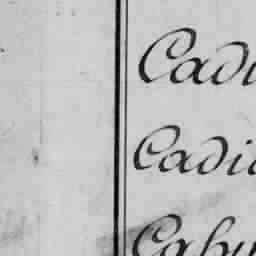 Cadi
Cadic
Cahu